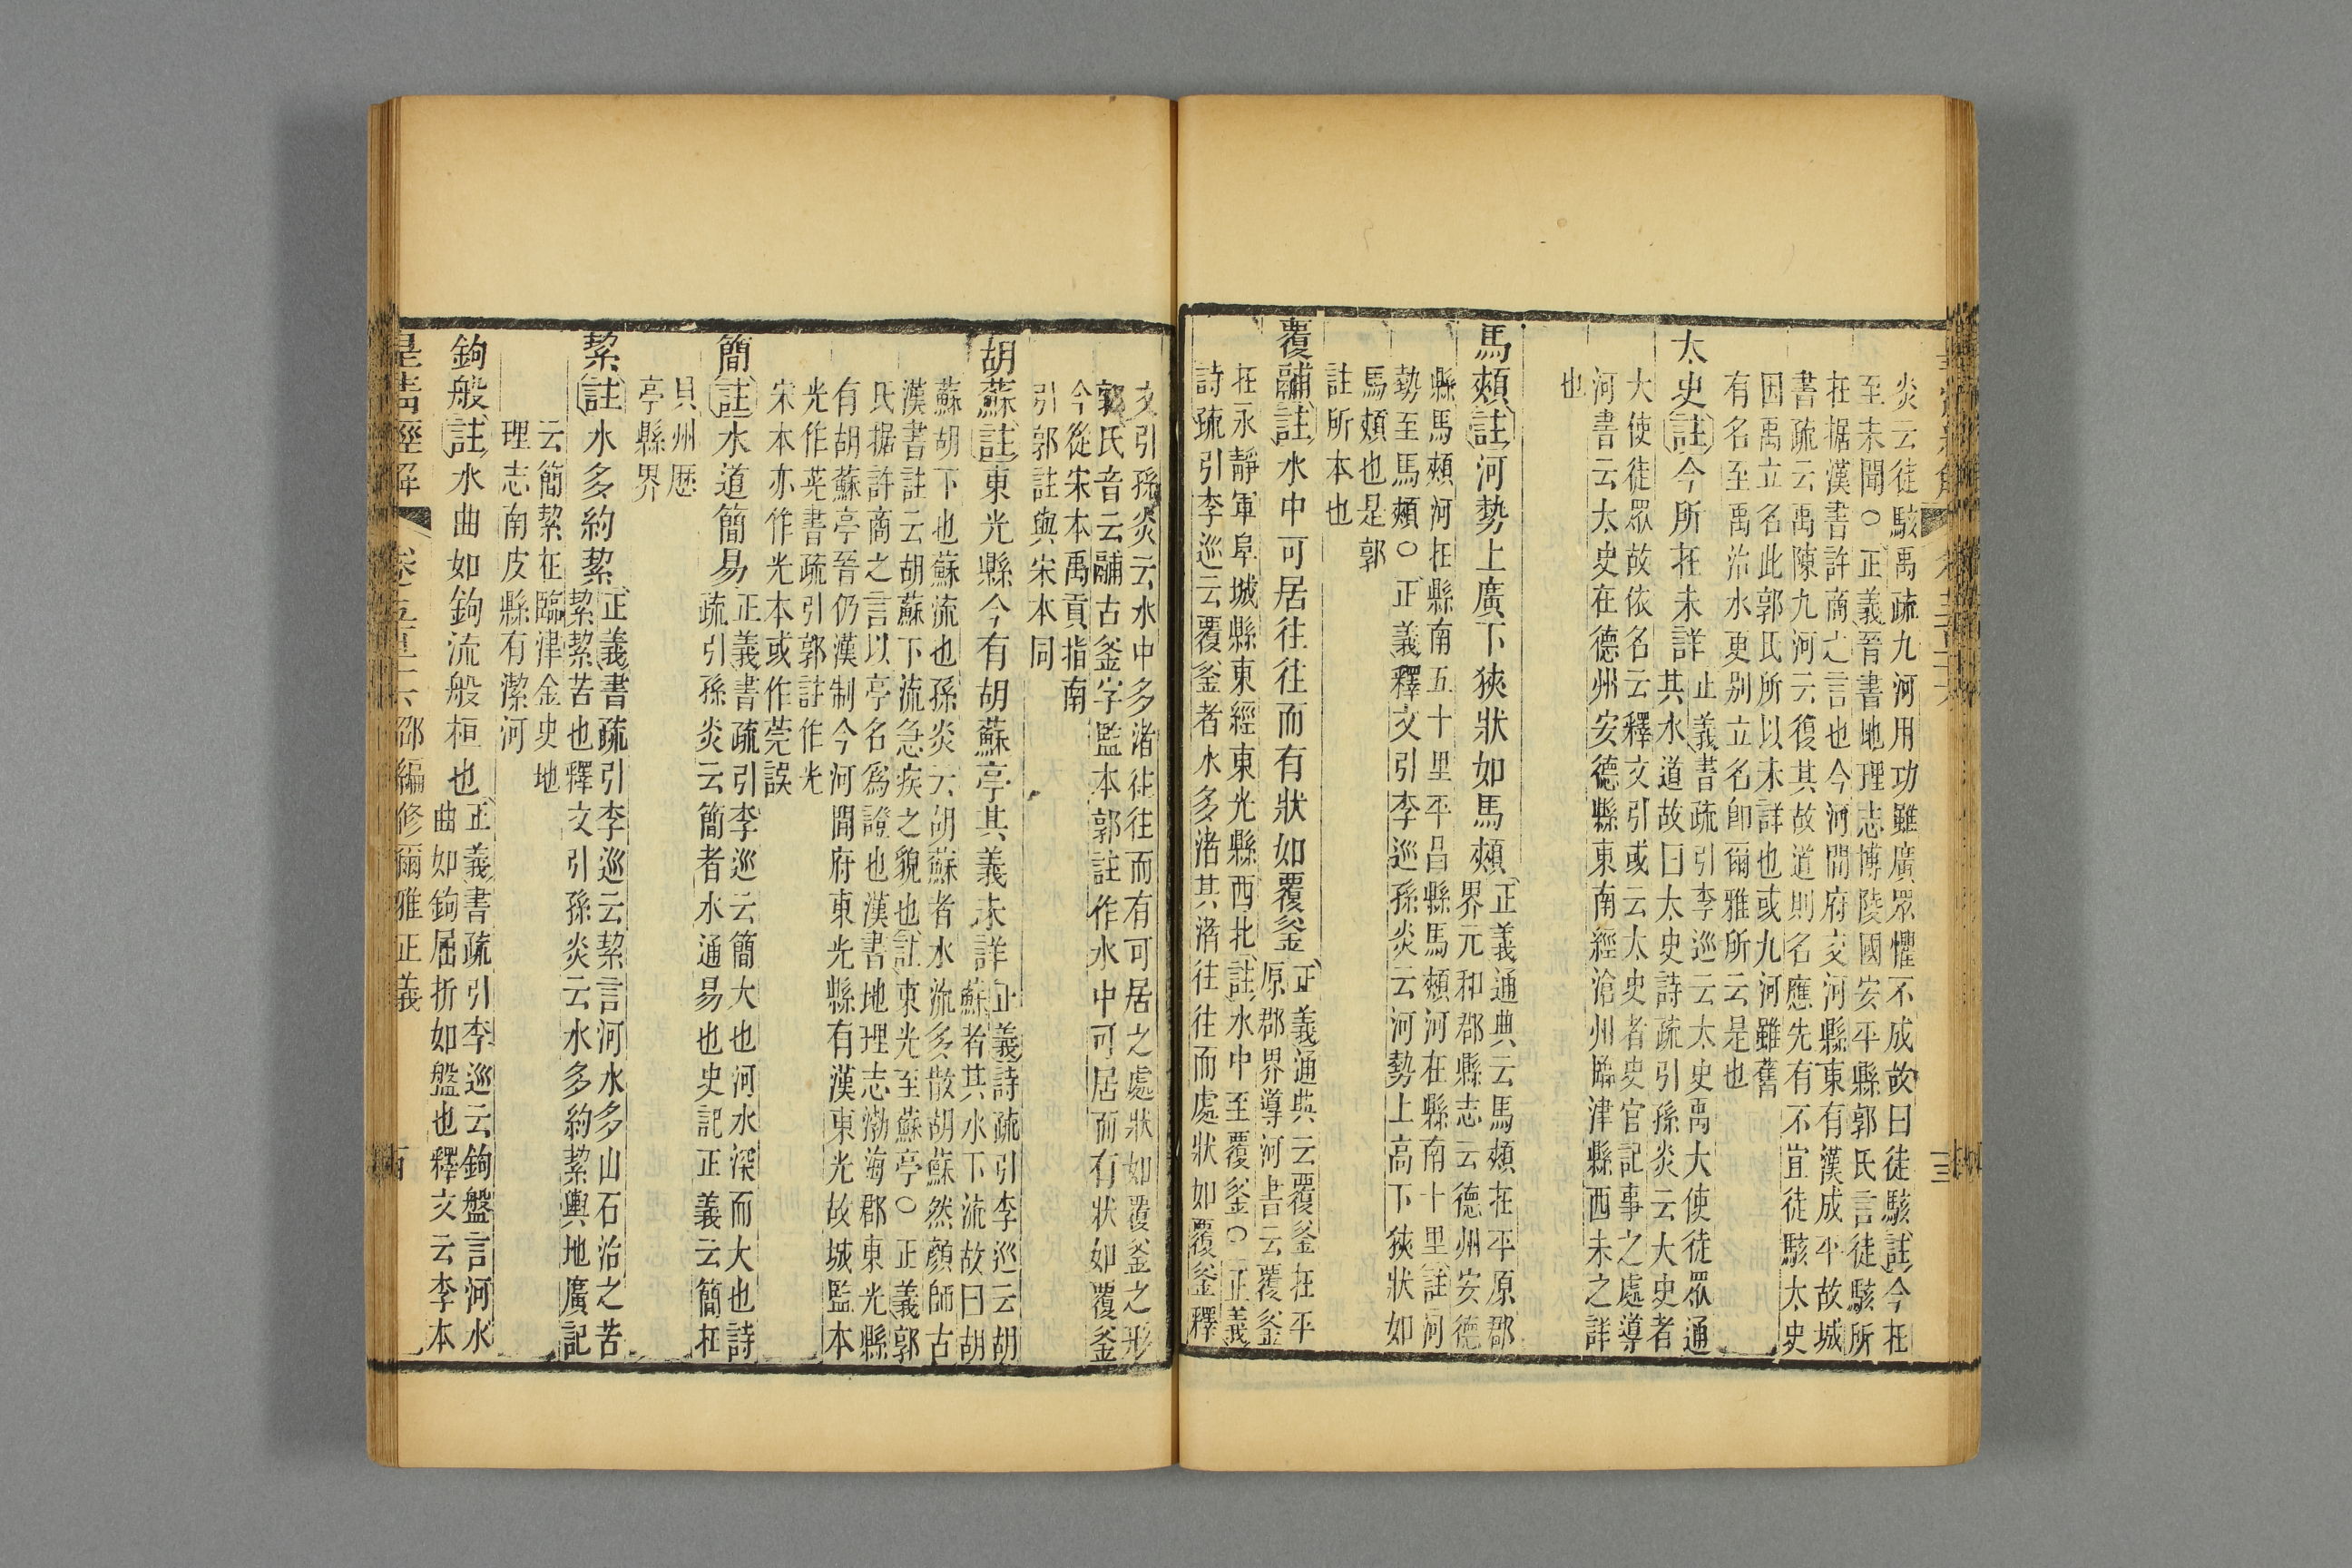 炎云徒駭禹疏九河用功雖廣眾懼不成故曰徒駭註今在
至未聞○正義晉書地理志博陵國安平縣郭氏言徒駭所
在据漢書許商之言也今河間府交河縣東有漢成平故城
書疏云禹陳九河云復其故道則名應先有不宜徒駭太史
因禹立名此郭氏所以未詳也或九河雖舊
有名至禹治水更别立名卽爾雅所云是也
太史註今所在未詳正義書疏引李巡云太史禹大使徒眾通
其水道故曰太史詩疏引孫炎云大史者
大使徒眾故依名云釋文引或云太史者史官記事之處導
河書云太史在德州安德縣東南經滄州臨津縣西未之詳
也
馬頰註河勢上廣下狹狀如馬頰正義通典云馬頰在平原郡
界元和郡縣志云德州安德
縣馬頰河在縣南五十里平昌縣馬頰河在縣南十里註河
勢至馬頰○正義釋文引李巡孫炎云河勢上高下狹狀如
馬頰也是郭
註所本也
覆鬴註水中可居往往而有狀如覆釜正義通典云覆釜在平
原郡界導河書云覆釜
在永靜軍阜城縣東經東光縣西北註水中至覆釜○正義
詩疏引李巡云覆釜者水多渚其渚往往而處狀如覆釜釋
文引孫炎云水中多渚往往而有可居之處狀如覆釜之形
郭氏音云鬴古釜字監本郭註作水中可居而有狀如覆釜
今從宋本禹貢指南
引郭註與宋本同
胡蘇註東光縣今有胡蘇亭其義未詳正義詩疏引李巡云胡
蘇者其水下流故曰胡
蘇胡下也蘇流也孫炎云胡蘇者水流多散胡蘇然顏師古
漢書註云胡蘇下流急疾之貌也註東光至蘇亭○正義郭
氏据許商之言以亭名爲證也漢書地理志渤海郡東光縣
有胡蘇亭晉仍漢制今河間府東光縣有漢東光故城監本
光作茪書疏引郭註作光
宋本亦作光本或作莞誤
簡註水道簡易正義書疏引李巡云簡大也河水深而大也詩
疏引孫炎云簡者水通易也史記正義云簡在
貝州歷
亭縣界
絜註水多約絜正義書疏引李巡云絜言河水多山石治之苦
絜絜苦也釋文引孫炎云水多約絜輿地廣記
云簡絜在臨津金史地
理志南皮縣有潔河
鉤般註水曲如鉤流般桓也正義書疏引李巡云鉤盤言河水
曲如鉤屈折如盤也釋文云李本
皇清經解 卷五百十六 邵編修爾雅正義